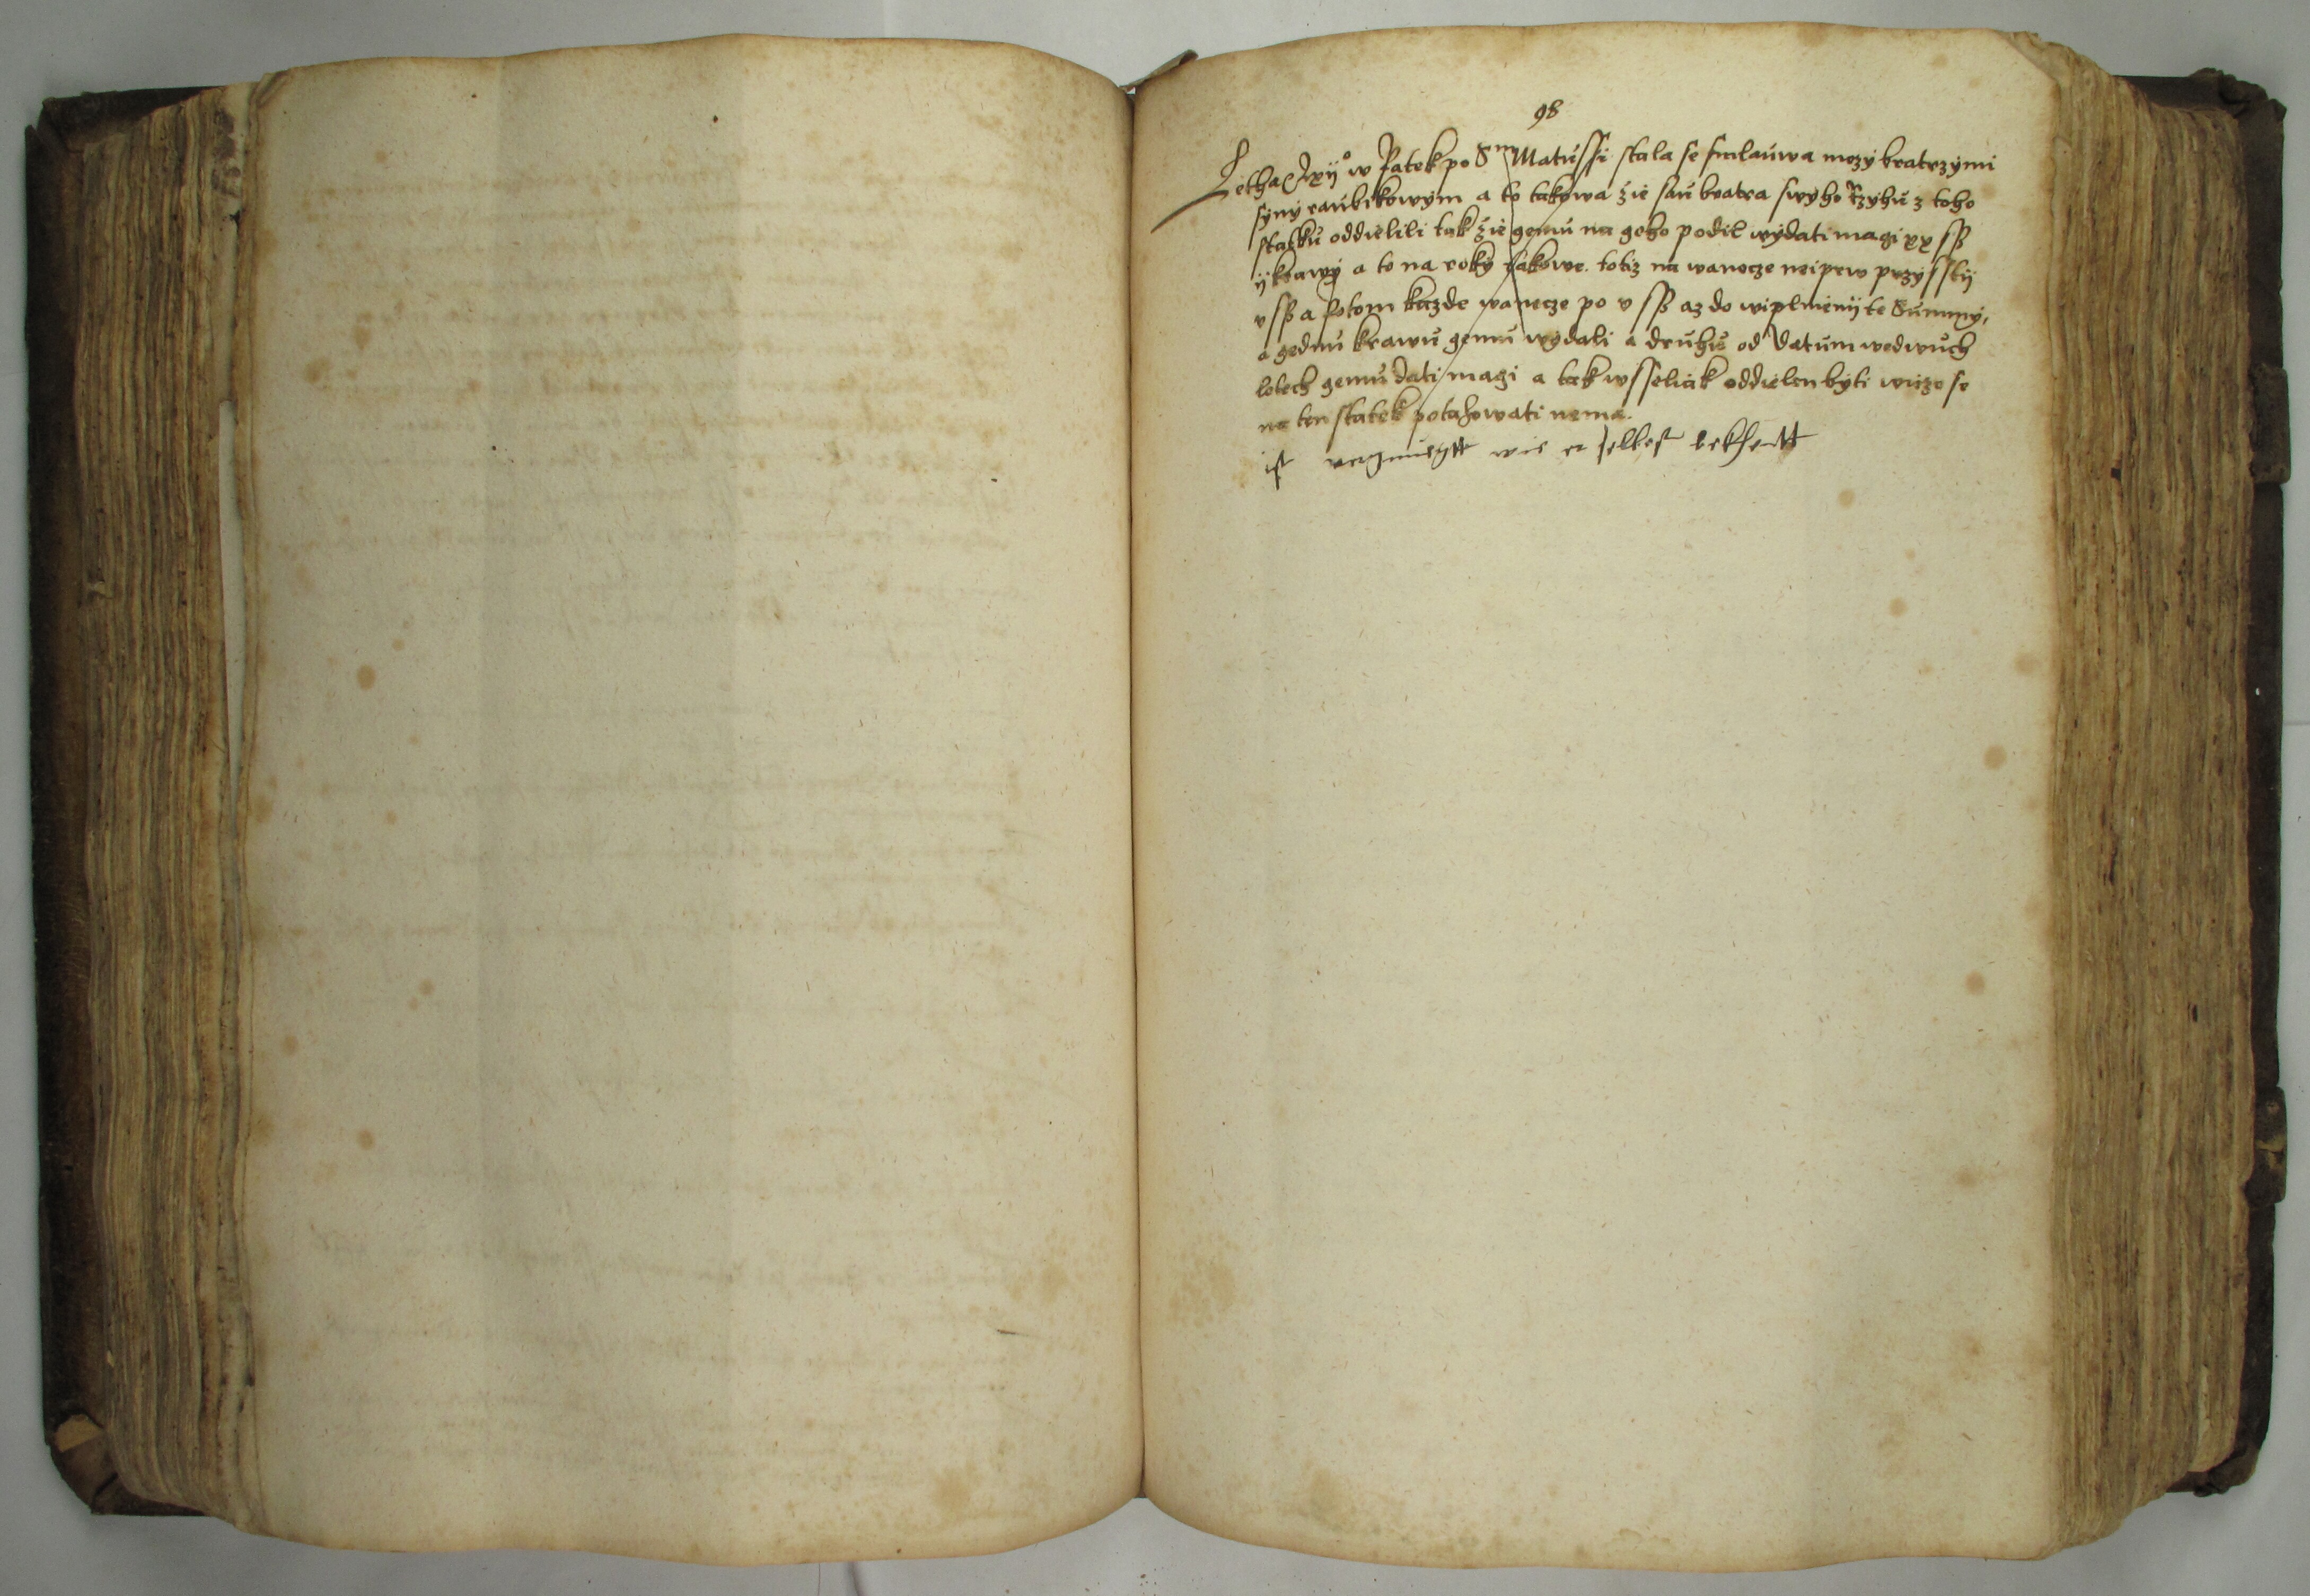 98
Letha xxij° w Patek po Sm Matussi stala se smlauwa mezy bratrzymi
syny raubikowym a to takowa zie sau bratra swyho Rzyhu z toho
statku oddielili tak zie gemu na geho podil wydati magi xx ss
ij krawy a to na roky takowe. totiz na wanocze neiprw przyssty
v ss a potom kazde wanocze po v ss az do wiplnienij te Summy,
a gednu krawu gemu wydali a druhu od datum wedwuch
letech gemu dati magi a tak wsseliak oddielen byti wicze se
na ten statek potahowati nema.
ist vergnuegtt wie er selbest bekhentt